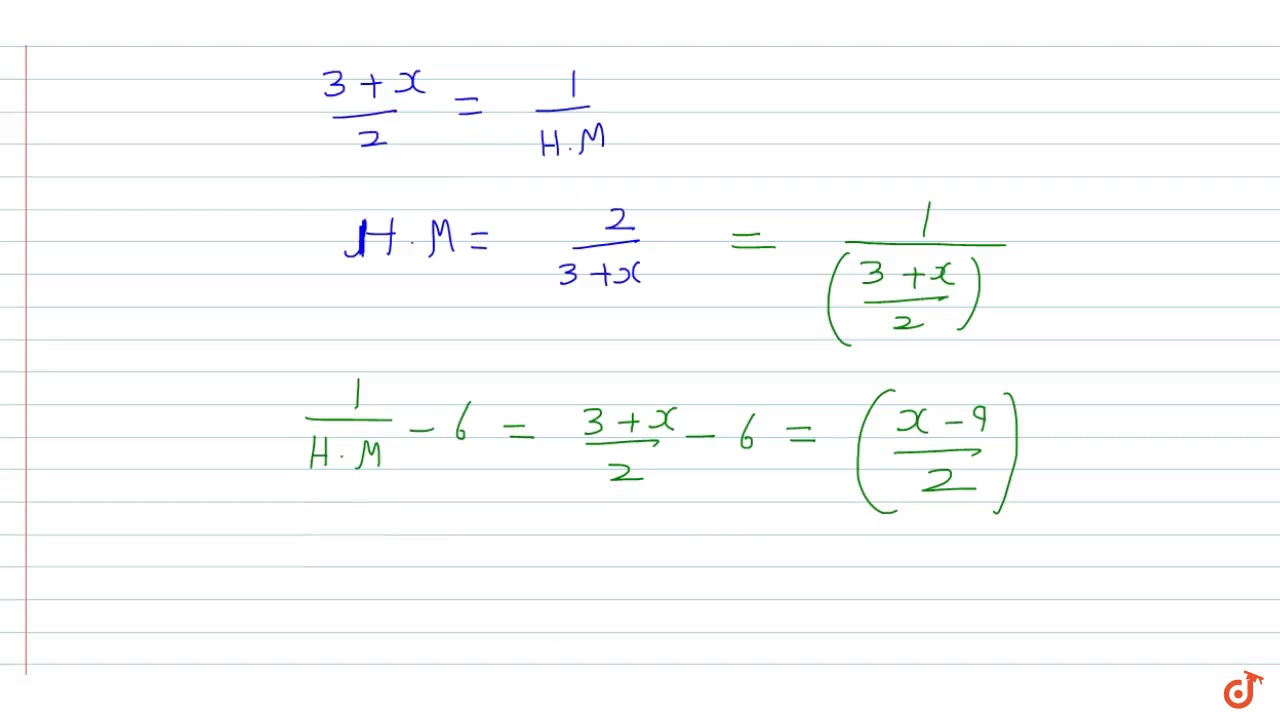 (3 + x)/2 = 1/H.M
H.M = 2/(3 + x) = 1/((3 + x)/2)
1/H.M - 6 = (3 + x)/2 - 6 = ((x - 9)/2)